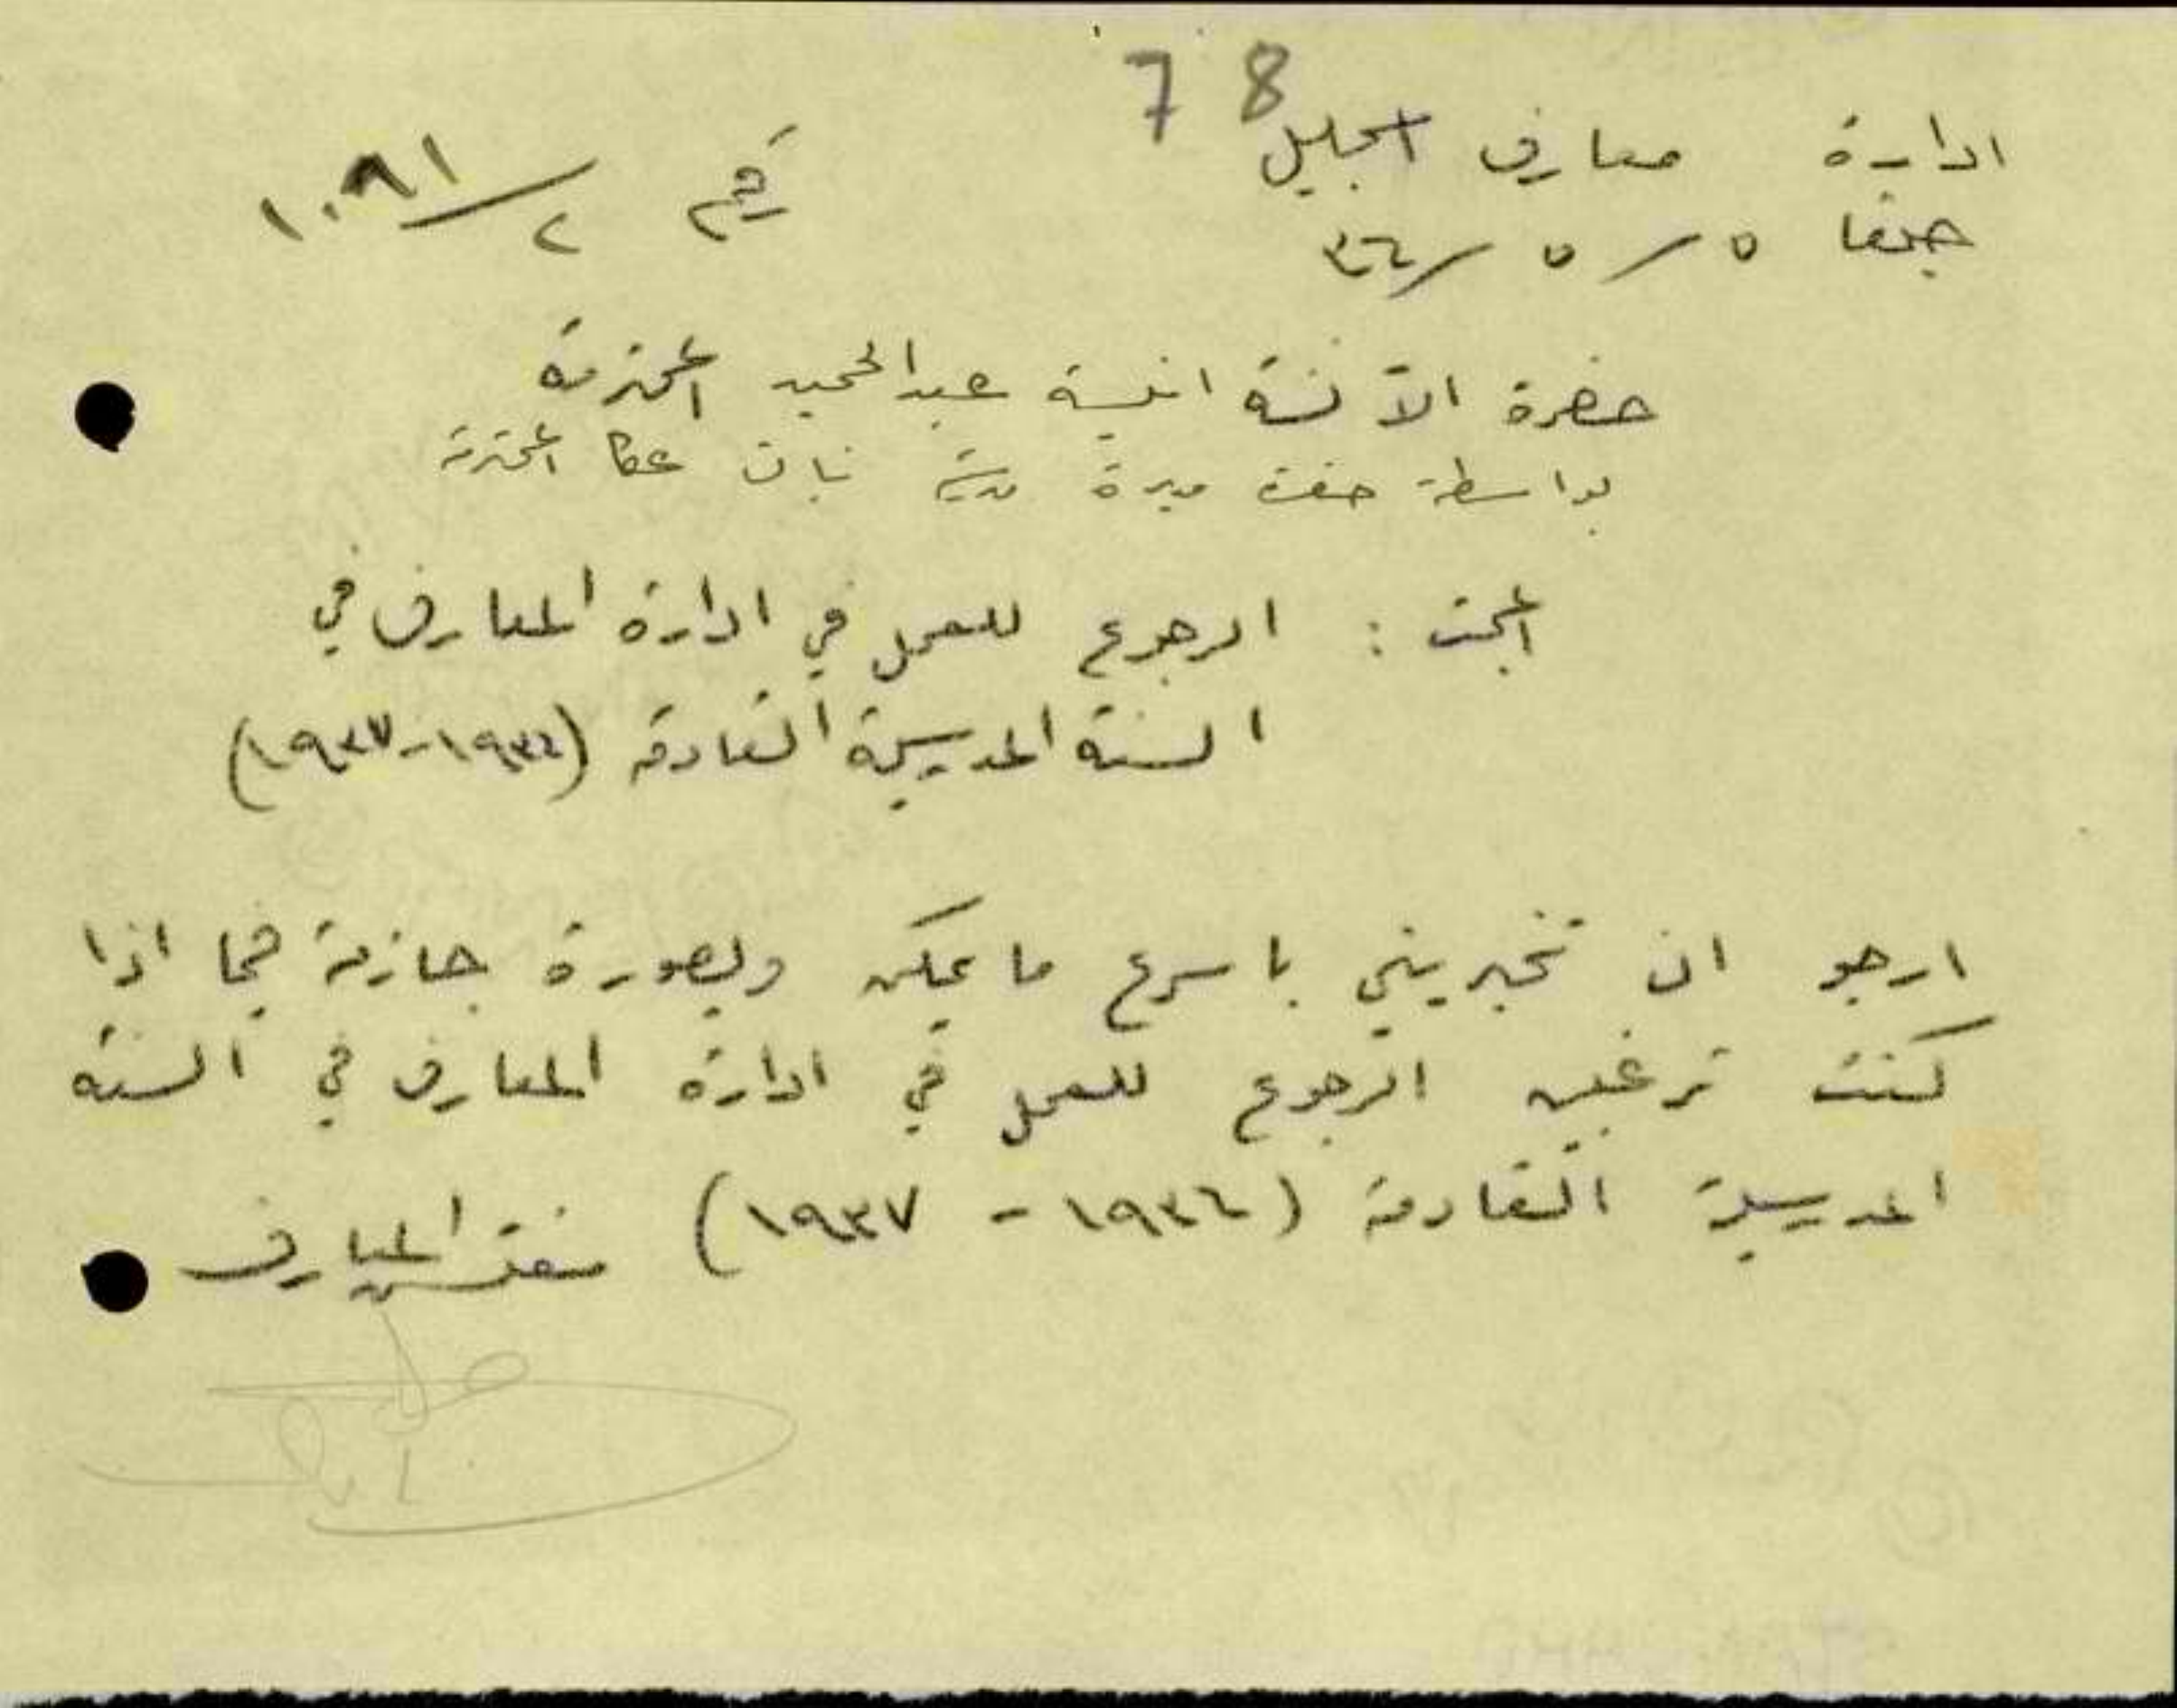 78
ادارة معارف الجليل
حيفا ٥ / ٥ / ٣٦
رقم ٢/١٠٨٩١
حضرة الآنسة انيسة عبد الحميد المحترمة
بواسطة حضرة مديرة مدرسة بنات عكا المحترمة
المبحث : الرجوع للعمل في ادارة المعارف في
السنة المدرسية القادمة (١٩٣٦-١٩٣٧)
ارجو ان تخبريني باسرع ما يمكن وبصورة جازمة فيما اذا
كنت ترغبين الرجوع للعمل في ادارة المعارف في السنة
المدرسية القادمة (١٩٣٦ - ١٩٣٧)
مفتش المعارف